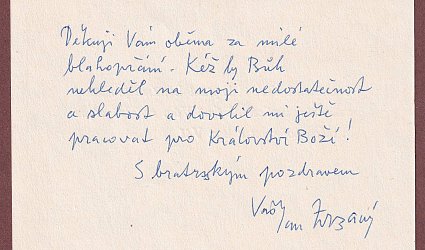 Děkuji Vám oběma za milé
blahopřání. Kéž by Bůh
nehleděl na moji nedostatečnost
a slabost a dovolil mi ještě
pracovat pro Království Boží!
S bratrským pozdravem
Váš Jan